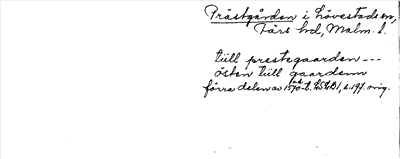 Prästgården i Lövestads sn,
Färs hd, Malm. l.
tiill prestegaarden ---
östen tiill gaardenn
förra delen av 1570-t. LSLB1, s. 197. orig.